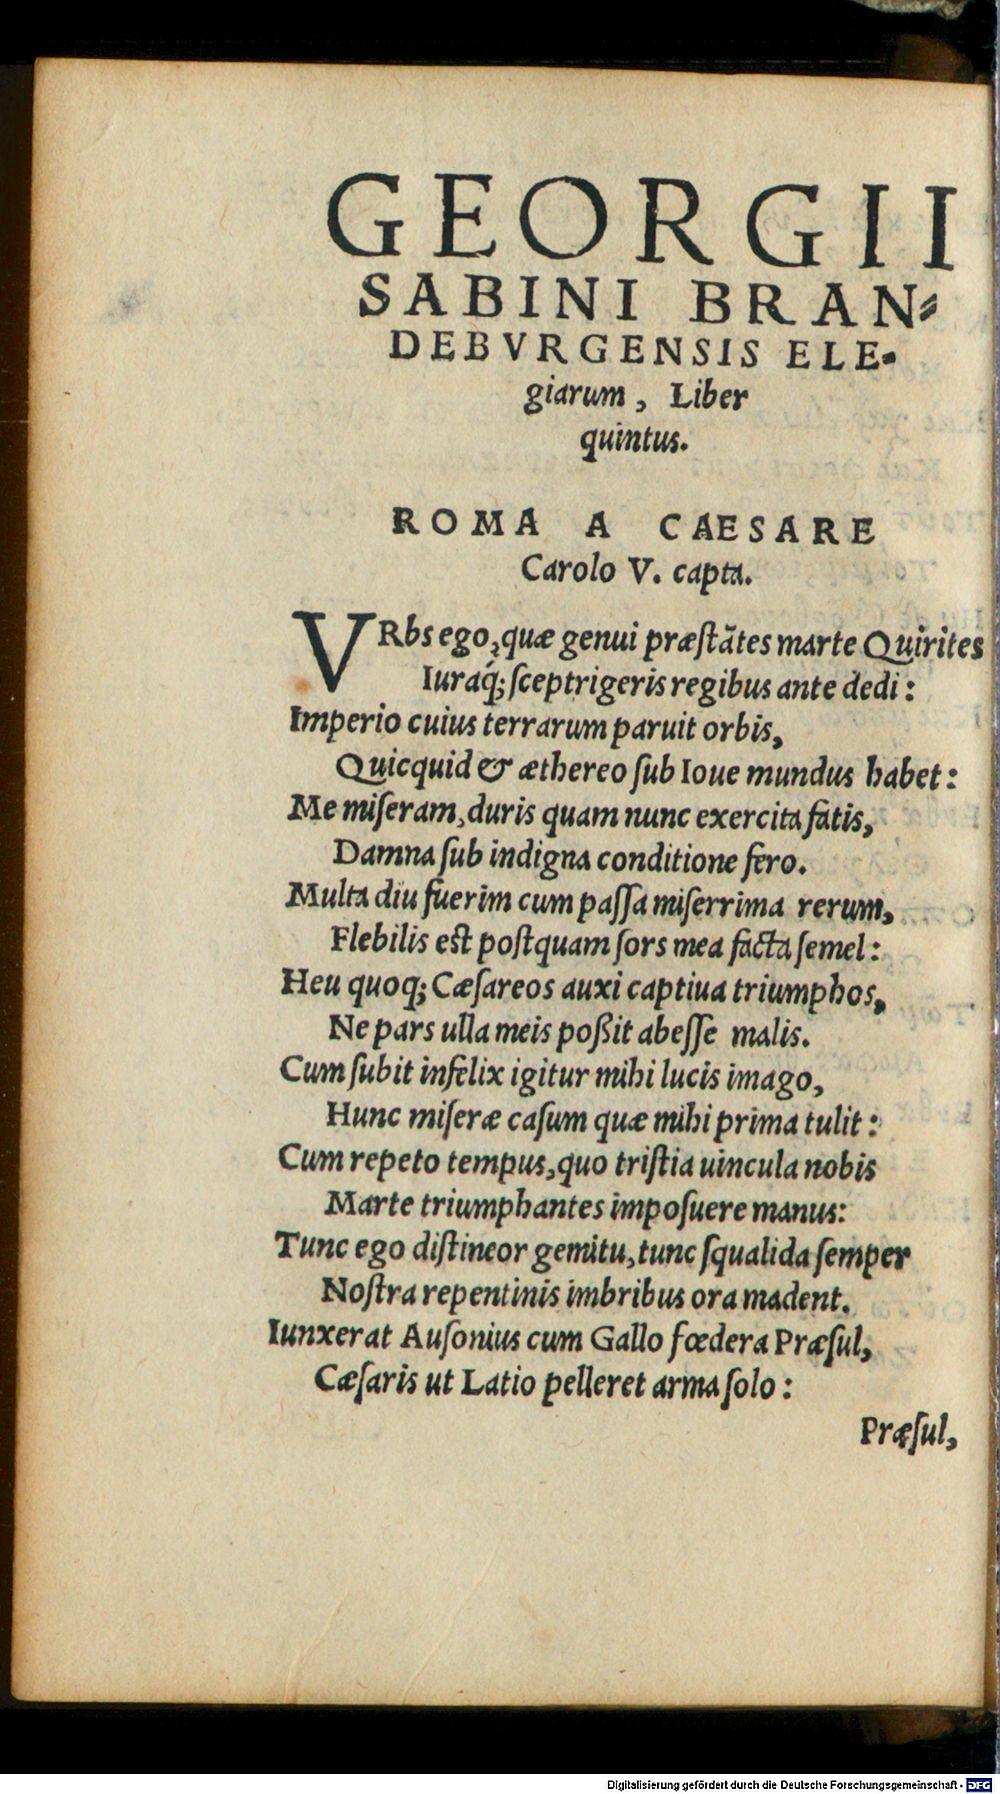 GEORGII
SABINI BRAN-
DEBVRGENSIS ELE-
giarum, Liber
quintus.
ROMA A CAESARE
Carolo V. capta.
VRbs ego, quæ genui præſtãtes marte Quirites
Iuraq́; ſceptrigeris regibus ante dedi:
Imperio cuius terrarum paruit orbis,
Quicquid & æthereo ſub Ioue mundus habet:
Me miſeram, duris quam nunc exercita fatis,
Damna ſub indigna conditione fero.
Multa diu fuerim cum paſſa miſerrima rerum,
Flebilis est poſtquam ſors mea facta ſemel:
Heu quoq; Cæſareos auxi captiua triumphos,
Ne pars ulla meis poßit abeſſe malis.
Cum ſubit infelix igitur mihi lucis imago,
Hunc miſeræ caſum quæ mihi prima tulit:
Cum repeto tempus, quo triſtia uincula nobis
Marte triumphantes impoſuere manus:
Tunc ego diſtineor gemitu, tunc ſqualida ſemper
Noſtra repentinis imbribus ora madent.
Iunxerat Auſonius cum Gallo fœdera Præſul,
Cæſaris ut Latio pelleret arma ſolo:
Præſul,
Digitalisierung gefördert durch die Deutsche Forschungsgemeinschaft - DFG